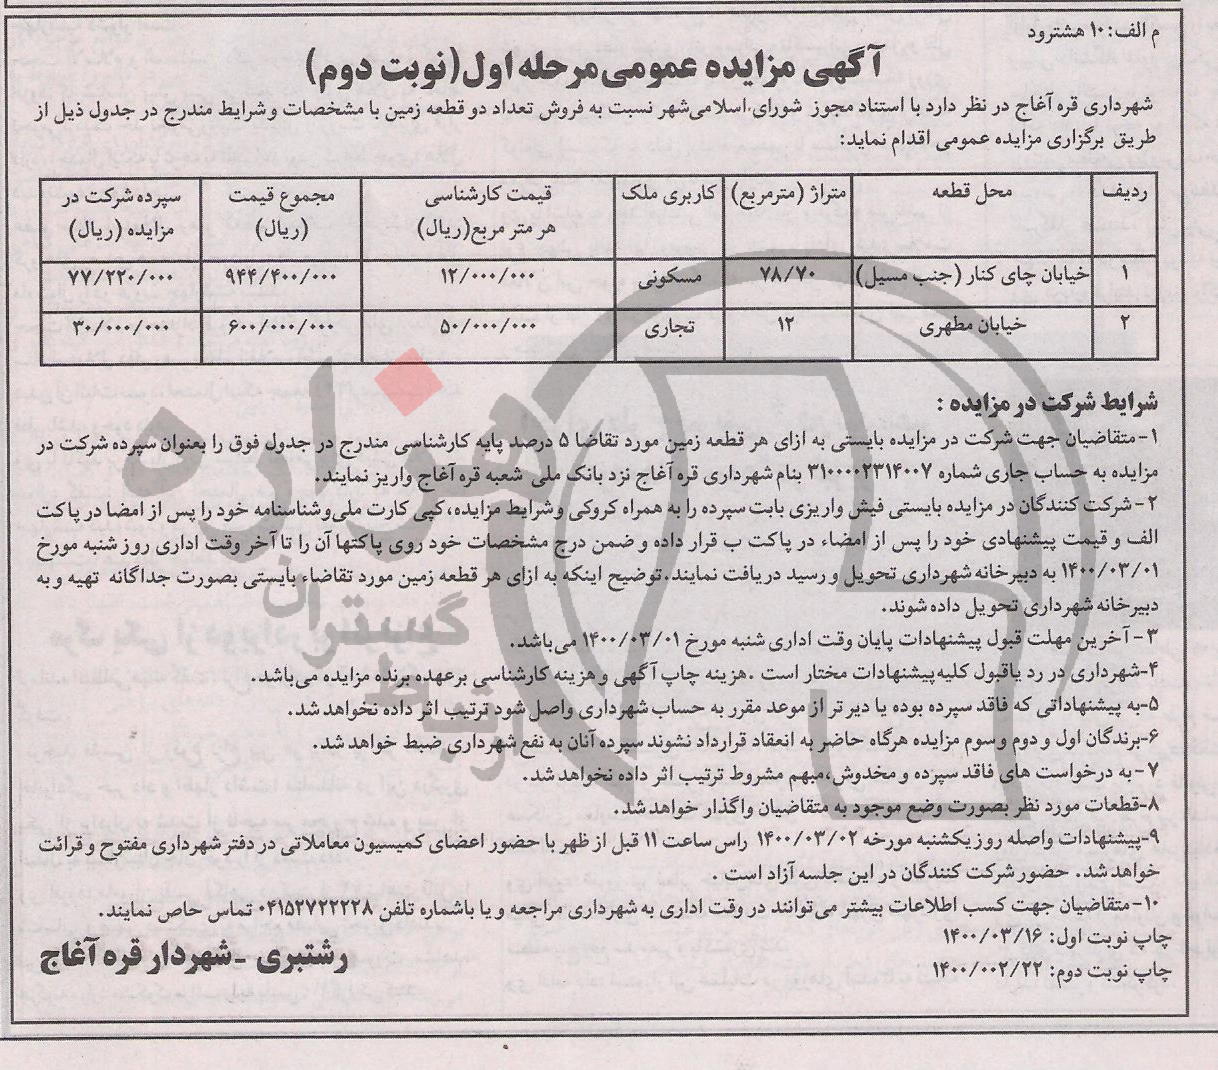 م الف: ۱۰ هشترود
آگهی مزایده عمومی مرحله اول (نوبت دوم)
شهرداری قره آغاج در نظر دارد با استناد مجوز شورای اسلامی شهر نسبت به فروش تعداد دو قطعه زمین با مشخصات و شرایط مندرج در جدول ذیل از
طریق برگزاری مزایده عمومی اقدام نماید:
ردیف محل قطعه متراژ (مترمربع) کاربری ملک قیمت کارشناسی هر متر مربع(ریال) مجموع قیمت (ریال) سپرده شرکت در مزایده (ریال)
۱ خیابان چای کنار (جنب مسیل) ۷۸/۷۰ مسکونی ۱۲/۰۰۰/۰۰۰ ۹۴۴/۴۰۰/۰۰۰ ۷۷/۲۲۰/۰۰۰
۲ خیابان مطهری ۱۲ تجاری ۵۰/۰۰۰/۰۰۰ ۶۰۰/۰۰۰/۰۰۰ ۳۰/۰۰۰/۰۰۰
شرایط شرکت در مزایده :
۱- متقاضیان جهت شرکت در مزایده بایستی به ازای هر قطعه زمین مورد تقاضا ۵ درصد پایه کارشناسی مندرج در جدول فوق را بعنوان سپرده شرکت در
مزایده به حساب جاری شماره ۳۱۰۰۰۰۲۳۱۴۰۰۷ بنام شهرداری قره آغاج نزد بانک ملی شعبه قره آغاج واریز نمایند.
۲- شرکت کنندگان در مزایده بایستی فیش واریزی بابت سپرده را به همراه کروکی وشرایط مزایده، کپی کارت ملی وشناسنامه خود را پس از امضا در پاکت
الف و قیمت پیشنهادی خود را پس از امضاء در پاکت ب قرار داده و ضمن درج مشخصات خود روی پاکتها آن را تا آخر وقت اداری روز شنبه مورخ
۱۴۰۰/۰۳/۰۱ به دبیرخانه شهرداری تحویل و رسید دریافت نمایند. توضیح اینکه به ازای هر قطعه زمین مورد تقاضاء بایستی بصورت جداگانه تهیه و به
دبیرخانه شهرداری تحویل داده شوند.
۳- آخرین مهلت قبول پیشنهادات پایان وقت اداری شنبه مورخ ۱۴۰۰/۰۳/۰۱ می باشد.
۴-شهرداری در رد یاقبول کلیه پیشنهادات مختار است . هزینه چاپ آگهی و هزینه کارشناسی برعهده برنده مزایده می باشد.
۵-به پیشنهاداتی که فاقد سپرده بوده یا دیرتر از موعد مقرر به حساب شهرداری واصل شود ترتیب اثر داده نخواهد شد.
۶-برندگان اول و دوم و سوم مزایده هرگاه حاضر به انعقاد قرارداد نشوند سپرده آنان به نفع شهرداری ضبط خواهد شد.
۷- به درخواست های فاقد سپرده و مخدوش، مبهم مشروط ترتیب اثر داده نخواهد شد.
۸-قطعات مورد نظر بصورت وضع موجود به متقاضیان واگذار خواهد شد.
۹-پیشنهادات واصله روز یکشنبه مورخه ۱۴۰۰/۰۳/۰۲ راس ساعت ۱۱ قبل از ظهر با حضور اعضای کمیسیون معاملاتی در دفتر شهرداری مفتوح و قرائت
خواهد شد. حضور شرکت کنندگان در این جلسه آزاد است .
۱۰- متقاضیان جهت کسب اطلاعات بیشتر می توانند در وقت اداری به شهرداری مراجعه و یا باشماره تلفن ۰۴۱۵۲۷۲۲۲۲۸ تماس حاصل نمایند.
چاپ نوبت اول: ۱۴۰۰/۰۳/۱۶
چاپ نوبت دوم: ۱۴۰۰/۰۰۲/۲۲
رشتبری - شهردار قره آغاج
هزاره
گستران
ارتباط